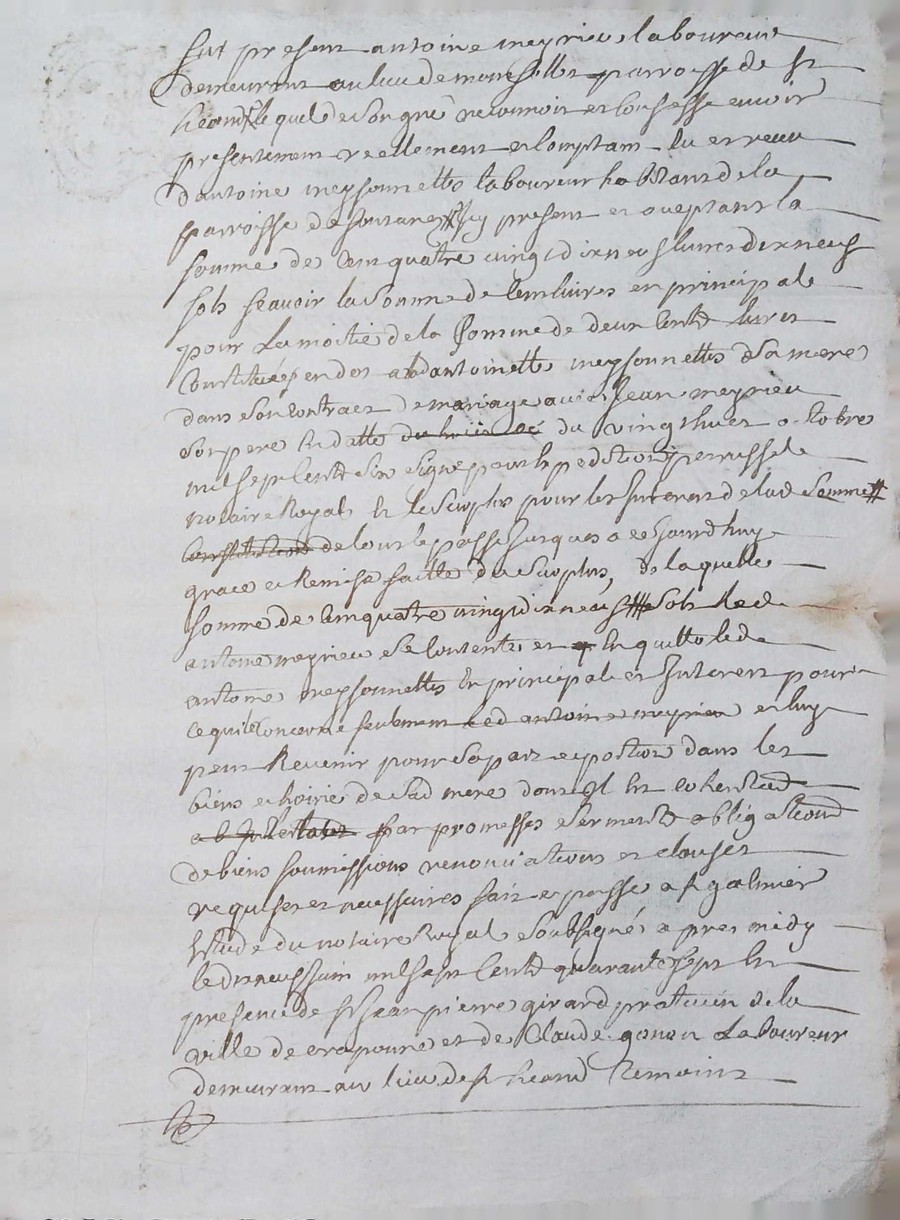 fut present antoine meyrieu laboureur
demeurant au lieu de parroisse de St
heand lequel de son gré reconnoit et confesse avoir
presentement reellement et comptant eu et receu
d'antoine meysonnettes laboureur habitant de la
parroisse de fontanes icy present et aceptant la
somme de cent quatre vingt dix neuf livres dix neuf
sols scavoir la somme de cent livres en principale
pour la moitié de la somme de deux cents livres
constituée en dot a antoinette meysonnettes sa mere
dans son contract de mariage avec Jean meyrieu
son pere en datte du vingt huit octobre
mil sept cents six signé pour expedition
notaire Royal et le surplus pour les interets de lad somme
constitution de tout le passé jusques a ce jourd'huy
grace et Remise faitte du surplus, de laquelle
somme de cent quatre vingt dix neuf sols led
antoine meyrieu se contente et en quitte led
antoine meysonnettes en principale et interets pour
ce qui concerne seulement led antoine meyrieu et luy
peut Revenir pour sa part et portion dans les
biens et hoirie de sad mere dont il est
par promesses serments obligations
de biens soumissions renonciations et clauses
requises et necessaires fait et passé a St galmier
estude du notaire Royal soubsigné apres midy
le dix neuf juin mil sept cents quarante sept en
presence de Sr Jean pierre girard praticien de la
ville de craponne et de Claude gonon Laboureur
demeurant au lieu de St heand Temoins